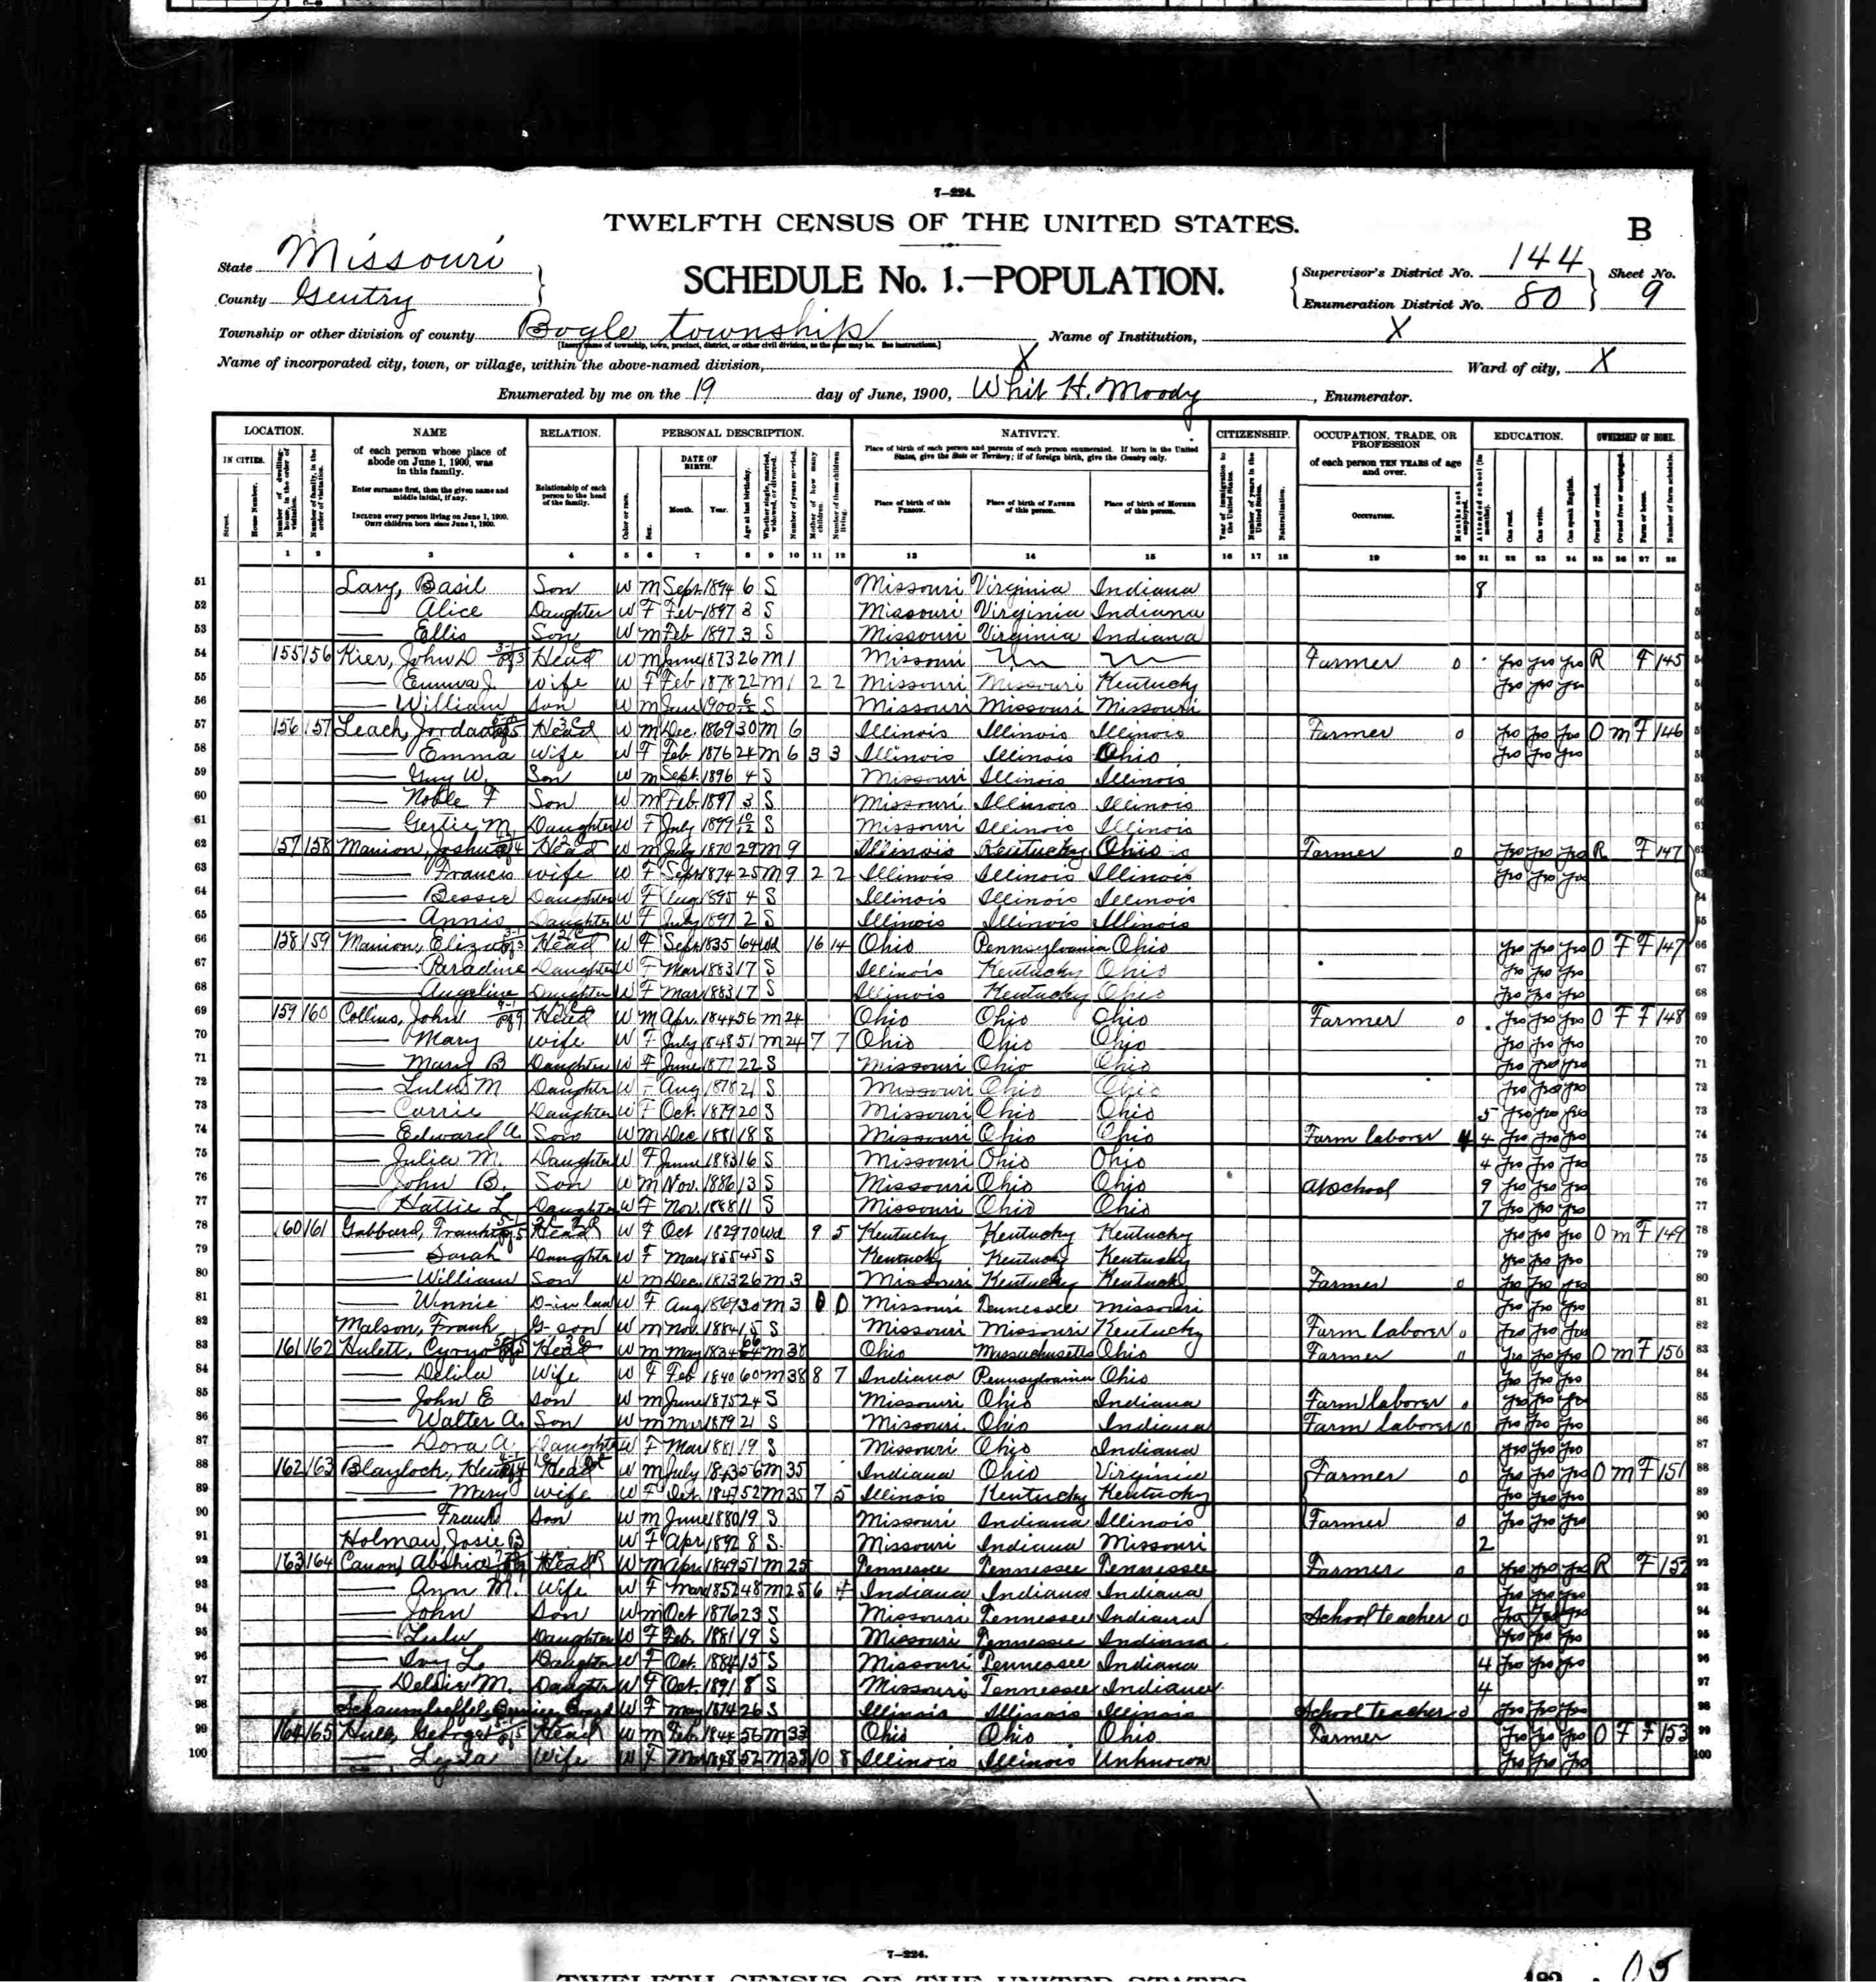 7—224.
TWELFTH CENSUS OF THE UNITED STATES.
B
State Missouri
County Gentry
SCHEDULE No. 1.—POPULATION.
Supervisor's District No. 144
Enumeration District No. 80
Sheet No. 9
Township or other division of county Bogle township Name of Institution, X
[Insert name of township, town, precinct, district, or other civil division, as the case may be. See instructions.]
Name of incorporated city, town, or village, within the above-named division, X Ward of city, X
Enumerated by me on the 19 day of June, 1900, Whit H. Moody, Enumerator.
LOCATION. NAME RELATION. PERSONAL DESCRIPTION. NATIVITY. CITIZENSHIP. OCCUPATION, TRADE, OR PROFESSION EDUCATION. OWNERSHIP OF HOME.
IN CITIES. of each person whose place of abode on June 1, 1900, was in this family. DATE OF BIRTH. Place of birth of each person and parents of each person enumerated. If born in the United States, give the State or Territory; if of foreign birth, give the Country only. of each person TEN YEARS of age and over.
Enter surname first, then the given name and middle initial, if any. Relationship of each person to the head of the family. Month. Year. Place of birth of this PERSON. Place of birth of FATHER of this person. Place of birth of MOTHER of this person. OCCUPATION.
INCLUDE every person living on June 1, 1900. OMIT children born since June 1, 1900.
1 2 3 4 5 6 7 8 9 10 11 12 13 14 15 16 17 18 19 20 21 22 23 24 25 26 27 28
51 Lary, Basil Son W M Sept 1894 6 S Missouri Virginia Indiana 8
52 — Alice Daughter W F Feb 1897 3 S Missouri Virginia Indiana
53 — Ellis Son W M Feb 1897 3 S Missouri Virginia Indiana
54 155 156 Kier, John D Head W M June 1873 26 M 1 Missouri Un Un Farmer 0 yes yes yes R F 145
55 — Emma J. Wife W F Feb 1878 22 M 1 2 2 Missouri Missouri Kentucky yes yes yes
56 — William Son W M 1900 Missouri Missouri Missouri
57 156 157 Leach, Jordan Head W M Dec. 1869 30 M 6 Illinois Illinois Illinois Farmer 0 yes yes yes O M F 146
58 — Emma Wife W F Feb. 1876 24 M 6 3 3 Illinois Illinois Ohio yes yes yes
59 — Guy W. Son W M Sept. 1896 4 S Missouri Illinois Illinois
60 — Noble F Son W M Feb 1897 3 S Missouri Illinois Illinois
61 — Gertie M. Daughter W F July 1899 10/12 S Missouri Illinois Illinois
62 157 158 Manion, Joshua Head W M July 1870 29 M 9 Illinois Kentucky Ohio Farmer 0 yes yes yes R F 147
63 — Francis Wife W F Sept 1874 25 M 9 2 2 Illinois Illinois Illinois yes yes yes
64 — Bessie Daughter W F Aug 1895 4 S Illinois Illinois Illinois
65 — Annis Daughter W F July 1897 2 S Illinois Illinois Illinois
66 158 159 Manion, Eliza Head W F Sept 1835 64 Wd 16 14 Ohio Pennsylvania Ohio yes yes yes O F F 147
67 — Paradine Daughter W F Mar 1883 17 S Illinois Kentucky Ohio yes yes yes
68 — Angeline Daughter W F Mar 1883 17 S Illinois Kentucky Ohio yes yes yes
69 159 160 Collins, John Head W M Apr. 1844 56 M 24 Ohio Ohio Ohio Farmer 0 yes yes yes O F F 148
70 — Mary Wife W F July 1848 51 M 24 7 7 Ohio Ohio Ohio yes yes yes
71 — Mary B Daughter W F June 1877 22 S Missouri Ohio Ohio yes yes yes
72 — Lulu M Daughter W F Aug 1878 21 S Missouri Ohio Ohio yes yes yes
73 — Carrie Daughter W F Oct. 1879 20 S Missouri Ohio Ohio 5 yes yes yes
74 — Edward A Son W M Dec 1881 18 S Missouri Ohio Ohio Farm laborer 4 4 yes yes yes
75 — Julia M. Daughter W F June 1883 16 S Missouri Ohio Ohio 4 yes yes yes
76 — John B. Son W M Nov. 1886 13 S Missouri Ohio Ohio At school 9 yes yes yes
77 — Hattie L Daughter W F Nov. 1888 11 S Missouri Ohio Ohio 7 yes yes yes
78 160 161 Gabbard, Frankie Head W F Oct 1829 70 Wd 9 5 Kentucky Kentucky Kentucky yes yes yes O M F 149
79 — Sarah Daughter W F Mar 1855 45 S Kentucky Kentucky Kentucky yes yes yes
80 — William Son W M Dec. 1873 26 M 3 Missouri Kentucky Kentucky Farmer 0 yes yes yes
81 — Winnie D-in law W F Aug 1869 30 M 3 0 0 Missouri Tennessee Missouri yes yes yes
82 Malson, Frank G-son W M Nov. 1884 15 S Missouri Missouri Kentucky Farm laborer 0 yes yes yes
83 161 162 Hulett, Cyrus Head W M May 1834 66 M 38 Ohio Massachusetts Ohio Farmer 0 yes yes yes O M F 150
84 — Delila Wife W F Feb 1840 60 M 38 8 7 Indiana Pennsylvania Ohio yes yes yes
85 — John E Son W M June 1875 24 S Missouri Ohio Indiana Farm laborer yes yes yes
86 — Walter A. Son W M Mar 1879 21 S Missouri Ohio Indiana Farm laborer 0 yes yes yes
87 — Dora A. Daughter W F Mar 1881 19 S Missouri Ohio Indiana yes yes yes
88 162 163 Blaylock, Henry Head W M July 1843 56 M 35 Indiana Ohio Virginia Farmer 0 yes yes yes O M F 151
89 — Mary Wife W F Oct. 1847 52 M 35 7 5 Illinois Kentucky Kentucky yes yes yes
90 — Frank Son W M June 1880 19 S Missouri Indiana Illinois Farmer 0 yes yes yes
91 Holman, Josie B W F Apr 1892 8 S Missouri Indiana Missouri 2
92 163 164 Canon, Head W M Apr 1849 51 M 25 Tennessee Tennessee Tennessee Farmer 0 yes yes yes R F 152
93 — Ann M. Wife W F Mar 1852 48 M 25 6 4 Indiana Indiana Indiana yes yes yes
94 — John Son W M Oct 1876 23 S Missouri Tennessee Indiana School teacher 0 yes yes yes
95 — Lulu Daughter W F Feb. 1881 19 S Missouri Tennessee Indiana yes yes yes
96 — Ivy L. Daughter W F Oct. 1884 15 S Missouri Tennessee Indiana 4 yes yes yes
97 — M. Daughter W F Oct. 1891 8 S Missouri Tennessee Indiana 4
98 W F May 1874 26 S Illinois Illinois Illinois School teacher yes yes yes
99 164 165 George Head W M Feb. 1844 56 M 33 Ohio Ohio Ohio Farmer yes yes yes O F F 153
100 — Lyda Wife W F Mar 1848 52 M 33 10 8 Illinois Illinois Unknown yes yes yes
7—224.
TWELFTH CENSUS OF THE UNITED STATES